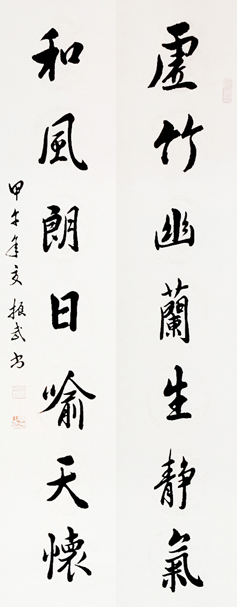 虛竹幽蘭生靜氣
和風朗日喻天懷
甲午年文振武書